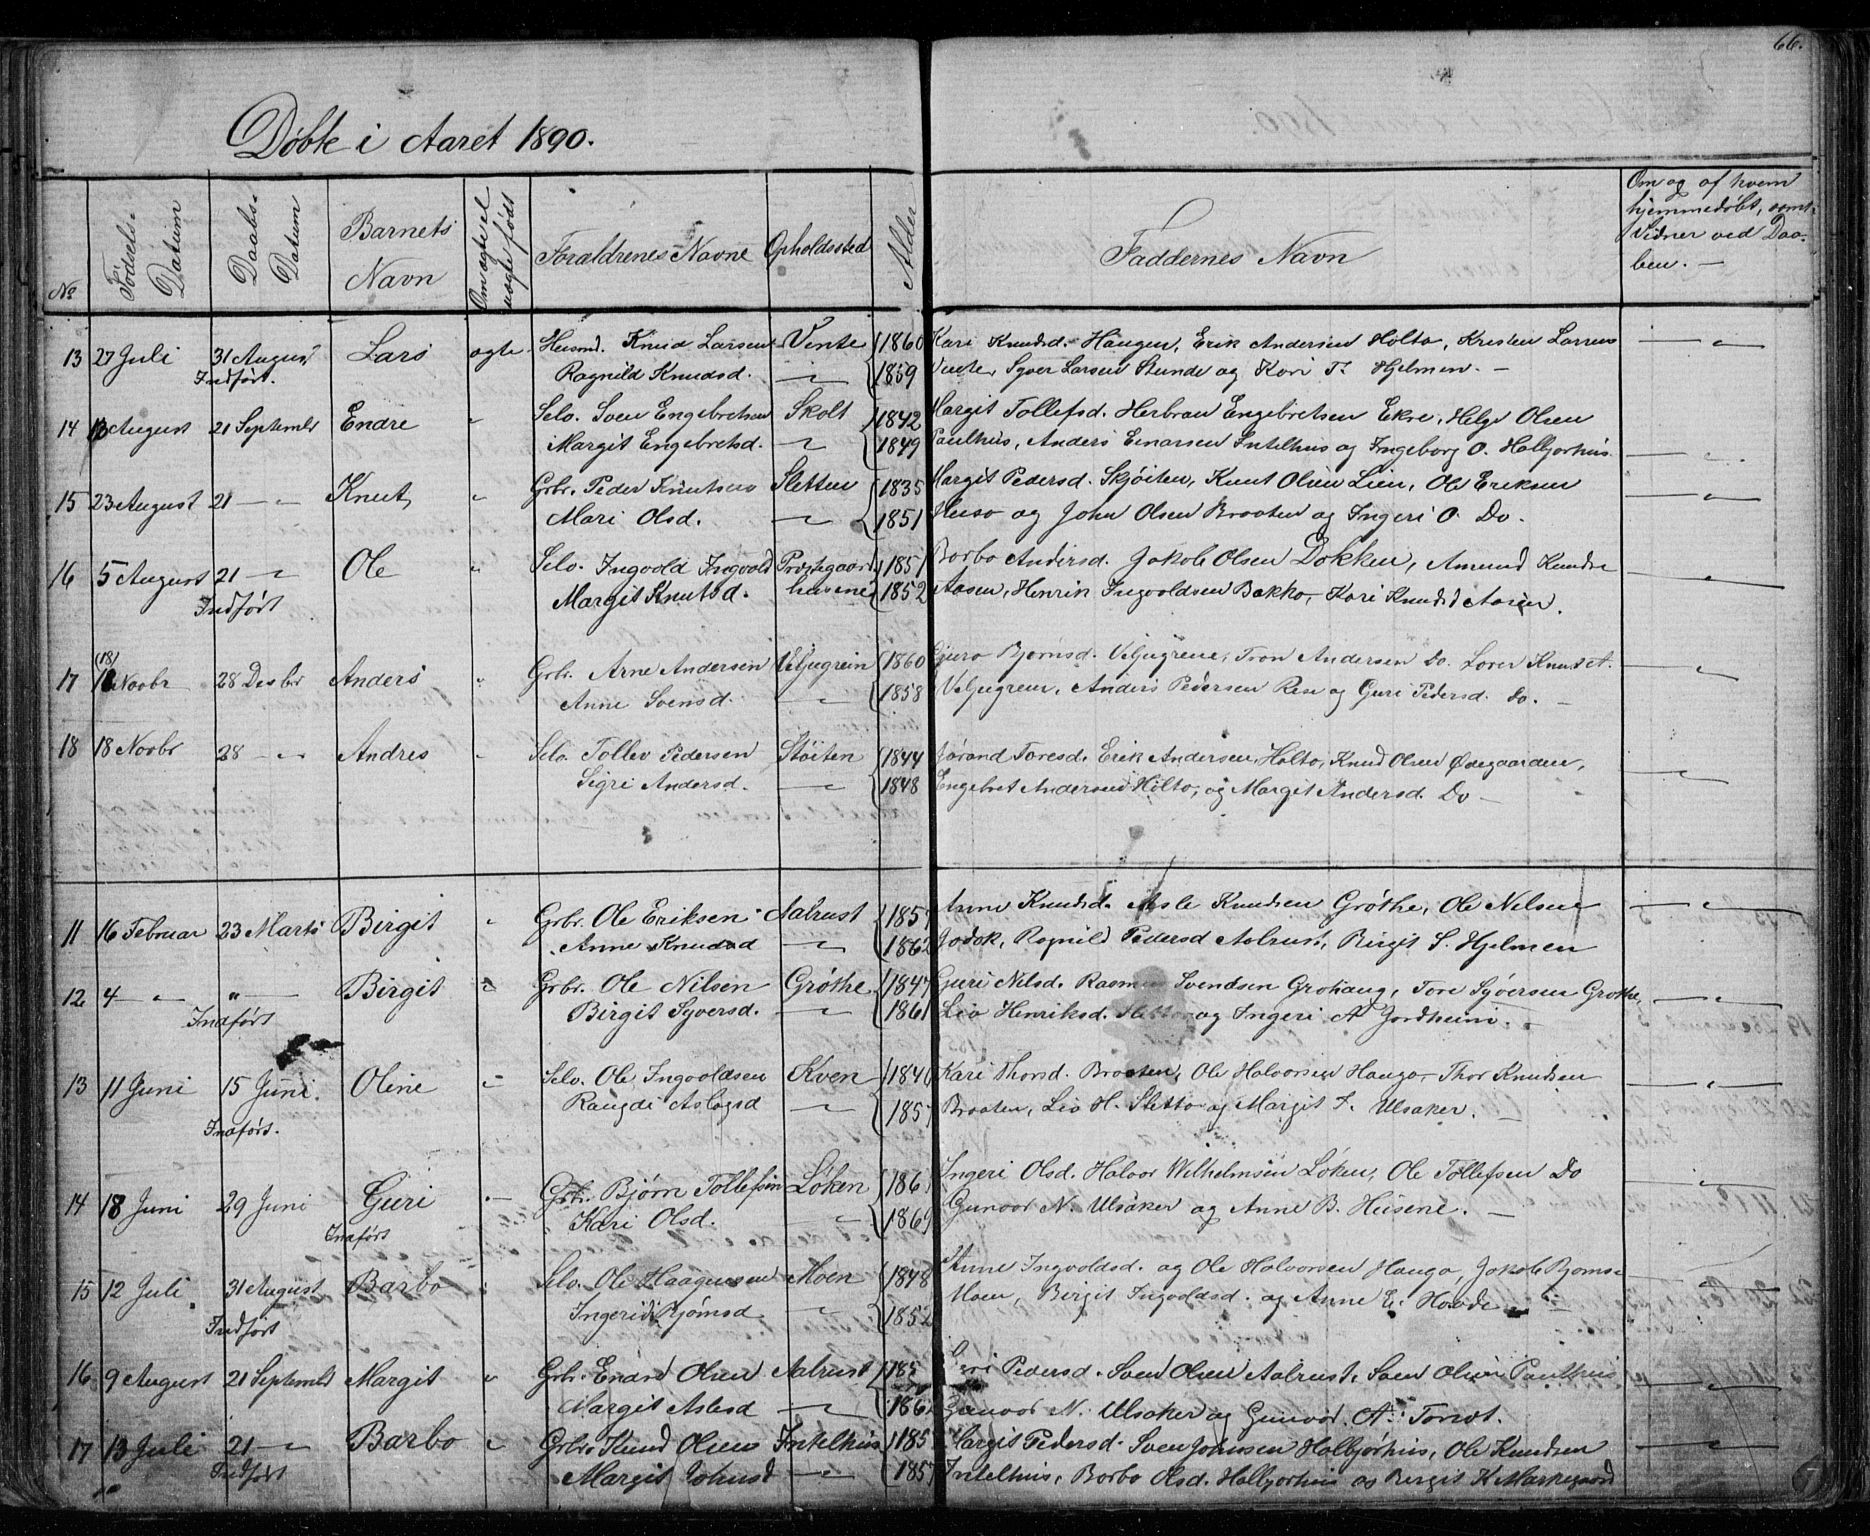 66.
Døbte i Aaret 1890.
No
Fødsels-Datum
Daabs-Datum
Barnets Navn
Om ægte el uægte født
Forældrenes Navne
Opholdssted
Alder
Faddernes Navn
Om og af hvem
hjemmedøbt, samt
Vidner ved Daa-
ben. —
13 27 Juli 31 August Lars ægte Husmd. Knud Larsen Vente 1860 Kari Knudsd. Haugen, Erik Andersen Holto, Kristen Larsens
Indført. Ragnild Knudsd. 1859 Vente, Syver Larsen Stunde og Kari T. Hjelmen. —
14 August 21 Septembr Endre " Selv. Sven Engebretsen Skolt 1842 Margit Tollefsd. Herbran Engebretsen Ekre, Helge Olsen
Margit Engebretsd. 1849 Paulhus, Anders Einarsen Intelhus og Ingeborg O. Halbjørhus.
15 23 August 21 — " Knut " Grbr. Peder Knutsen Sletten 1835 Margit Pedersd. Skjøiten, Knut Olsen Lien, Ole Eriksen
Mari Olsd. 1851 Huso og John Olsen Braaten og Ingeri O. Do.
16 5 August 21 — " Ole " Selv. Ingvold Ingvold Præstegaard 1851 Barbo Andersd. Jakob Olsen Dokken, Amund Knudse
Indført Margit Knutsd. husene 1852 Aasen, Henrik Ingvoldsen Bakko, Kari Knudsd Aasen.
(18)
17 Novbr 28 Desbr Anders " Grbr. Arne Andersen Veljugrein 1860 Guro Bjørnsd. Veljugrene, Tron Andersen Do. Knud A.
Anne Svensd. 1858 Veljugrein, Anders Pedersen Rese og Guri Pedersd. Do. —
18 18 Novbr 28 — " Andres " Selv. Tollev Pedersen Støiten 1844 Jørand Toresd. Erik Andersen Holto, Knud Olsen Ødegaarden,
Sigri Andersd. 1848 Engebret Andersen Holto, og Margit Andersd. Do —
11 16 Februar 23 Marts Birgit " Grbr. Ole Eriksen Aalrust 185 Anne Knudsd. Asle Knudsen Grøthe, Ole Nilsen
Anne Knudsd 1862 Jodok, Ragnild Pedersd Aalrust, Birgit S. Hjelmen
12 4 — " " — Birgit " Grbr. Ole Nilsen Grøthe 1847 Guri Nilsd. Rasmus Svendsen Grohaug, Tore Syversen Grøthe,
Indført Birgit Syversd. 1861 Liv Henriksd. Sletto og Ingeri A Jordheim.
13 11 Juni 15 Juni. Oline " Selv. Ole Ingvoldsen Kven 184 Kari Thorsd. Braaten, Ole Halvorsen Haugo, Thor Knudsen
Indført. Rangdi Aslagsd 185 Braaten, Liv H. Sletto og Margit T. Ulsaker. —
14 18 Juni 29 Juni Guri " Grbr. Bjørn Tollefsen Løken 186 Ingeri Olsd. Halvor Wilhelmsen Løken, Ole Tollefsen Do
Indført Kari Olsd. 186 Gunvor N. Ulsaker og Anne B. Husene. —
15 12 Juli 31 August Barbo " Selv. Ole Haagensen Moen 1848 Anne Ingvoldsd. og Ole Halvorsen Haugo, Jakob Bjørns-
Indført Ingerid Bjørnsd 1852 Moen, Birgit Ingvoldsd. og Anne E.
16 9 August 21 Septembr Margit " Grbr. Endre Olsen Aalrust 185 Pedersd. Sven Olsen Aalrust, Sven Olsen Paulhus
Margit Aslesd 186 Gunvor N. Ulsaker og Gunvor A.
17 13 Juli 21 — " Barbo " Grbr. Knud Olsen Intelhus 185 Margit Pedersd. Sven Johnsen Halbjørhus, Ole Knudsen
Indført Margit Johnsd 185 Intelhus, Barbo Olsd. Halbjørhus og Birgit K Markegaard